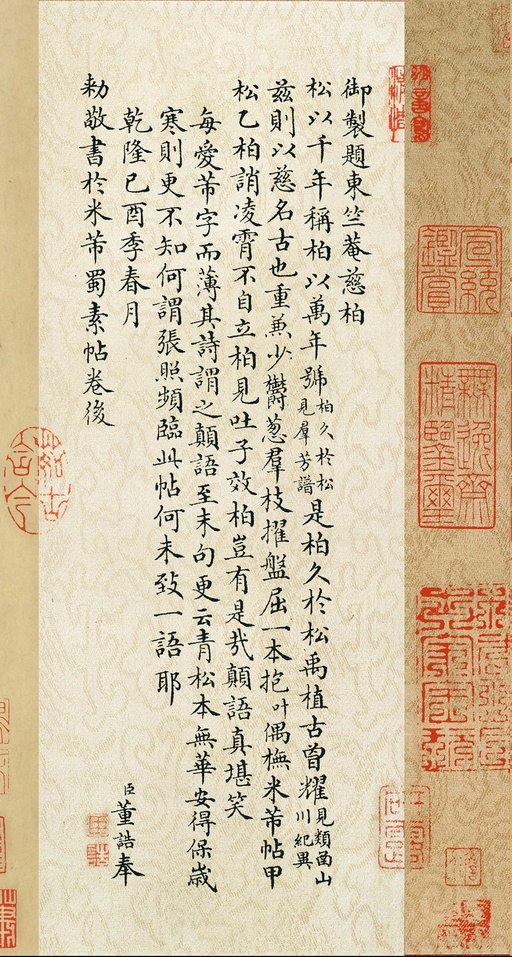 宣統鑑賞
無逸齋精鑒璽
御製題東竺菴慈柏
松以千年稱柏以萬年號柏久於松見羣芳譜是柏久於松禹植古曾耀見類函山川紀異
茲則以慈名古也重兼少欝蔥羣枝擢盤屈一本抱叶偶橅米芾帖甲
松乙柏誚凌霄不自立柏見吐子效柏豈有是㦲顛語真堪笑
每愛芾字而薄其詩謂之顛語至末句更云青松本無華安得保歲
寒則更不知何謂張照頻臨此帖何未致一語耶
乾隆己酉季春月
臣董誥奉
勑敬書於米芾蜀素帖卷後